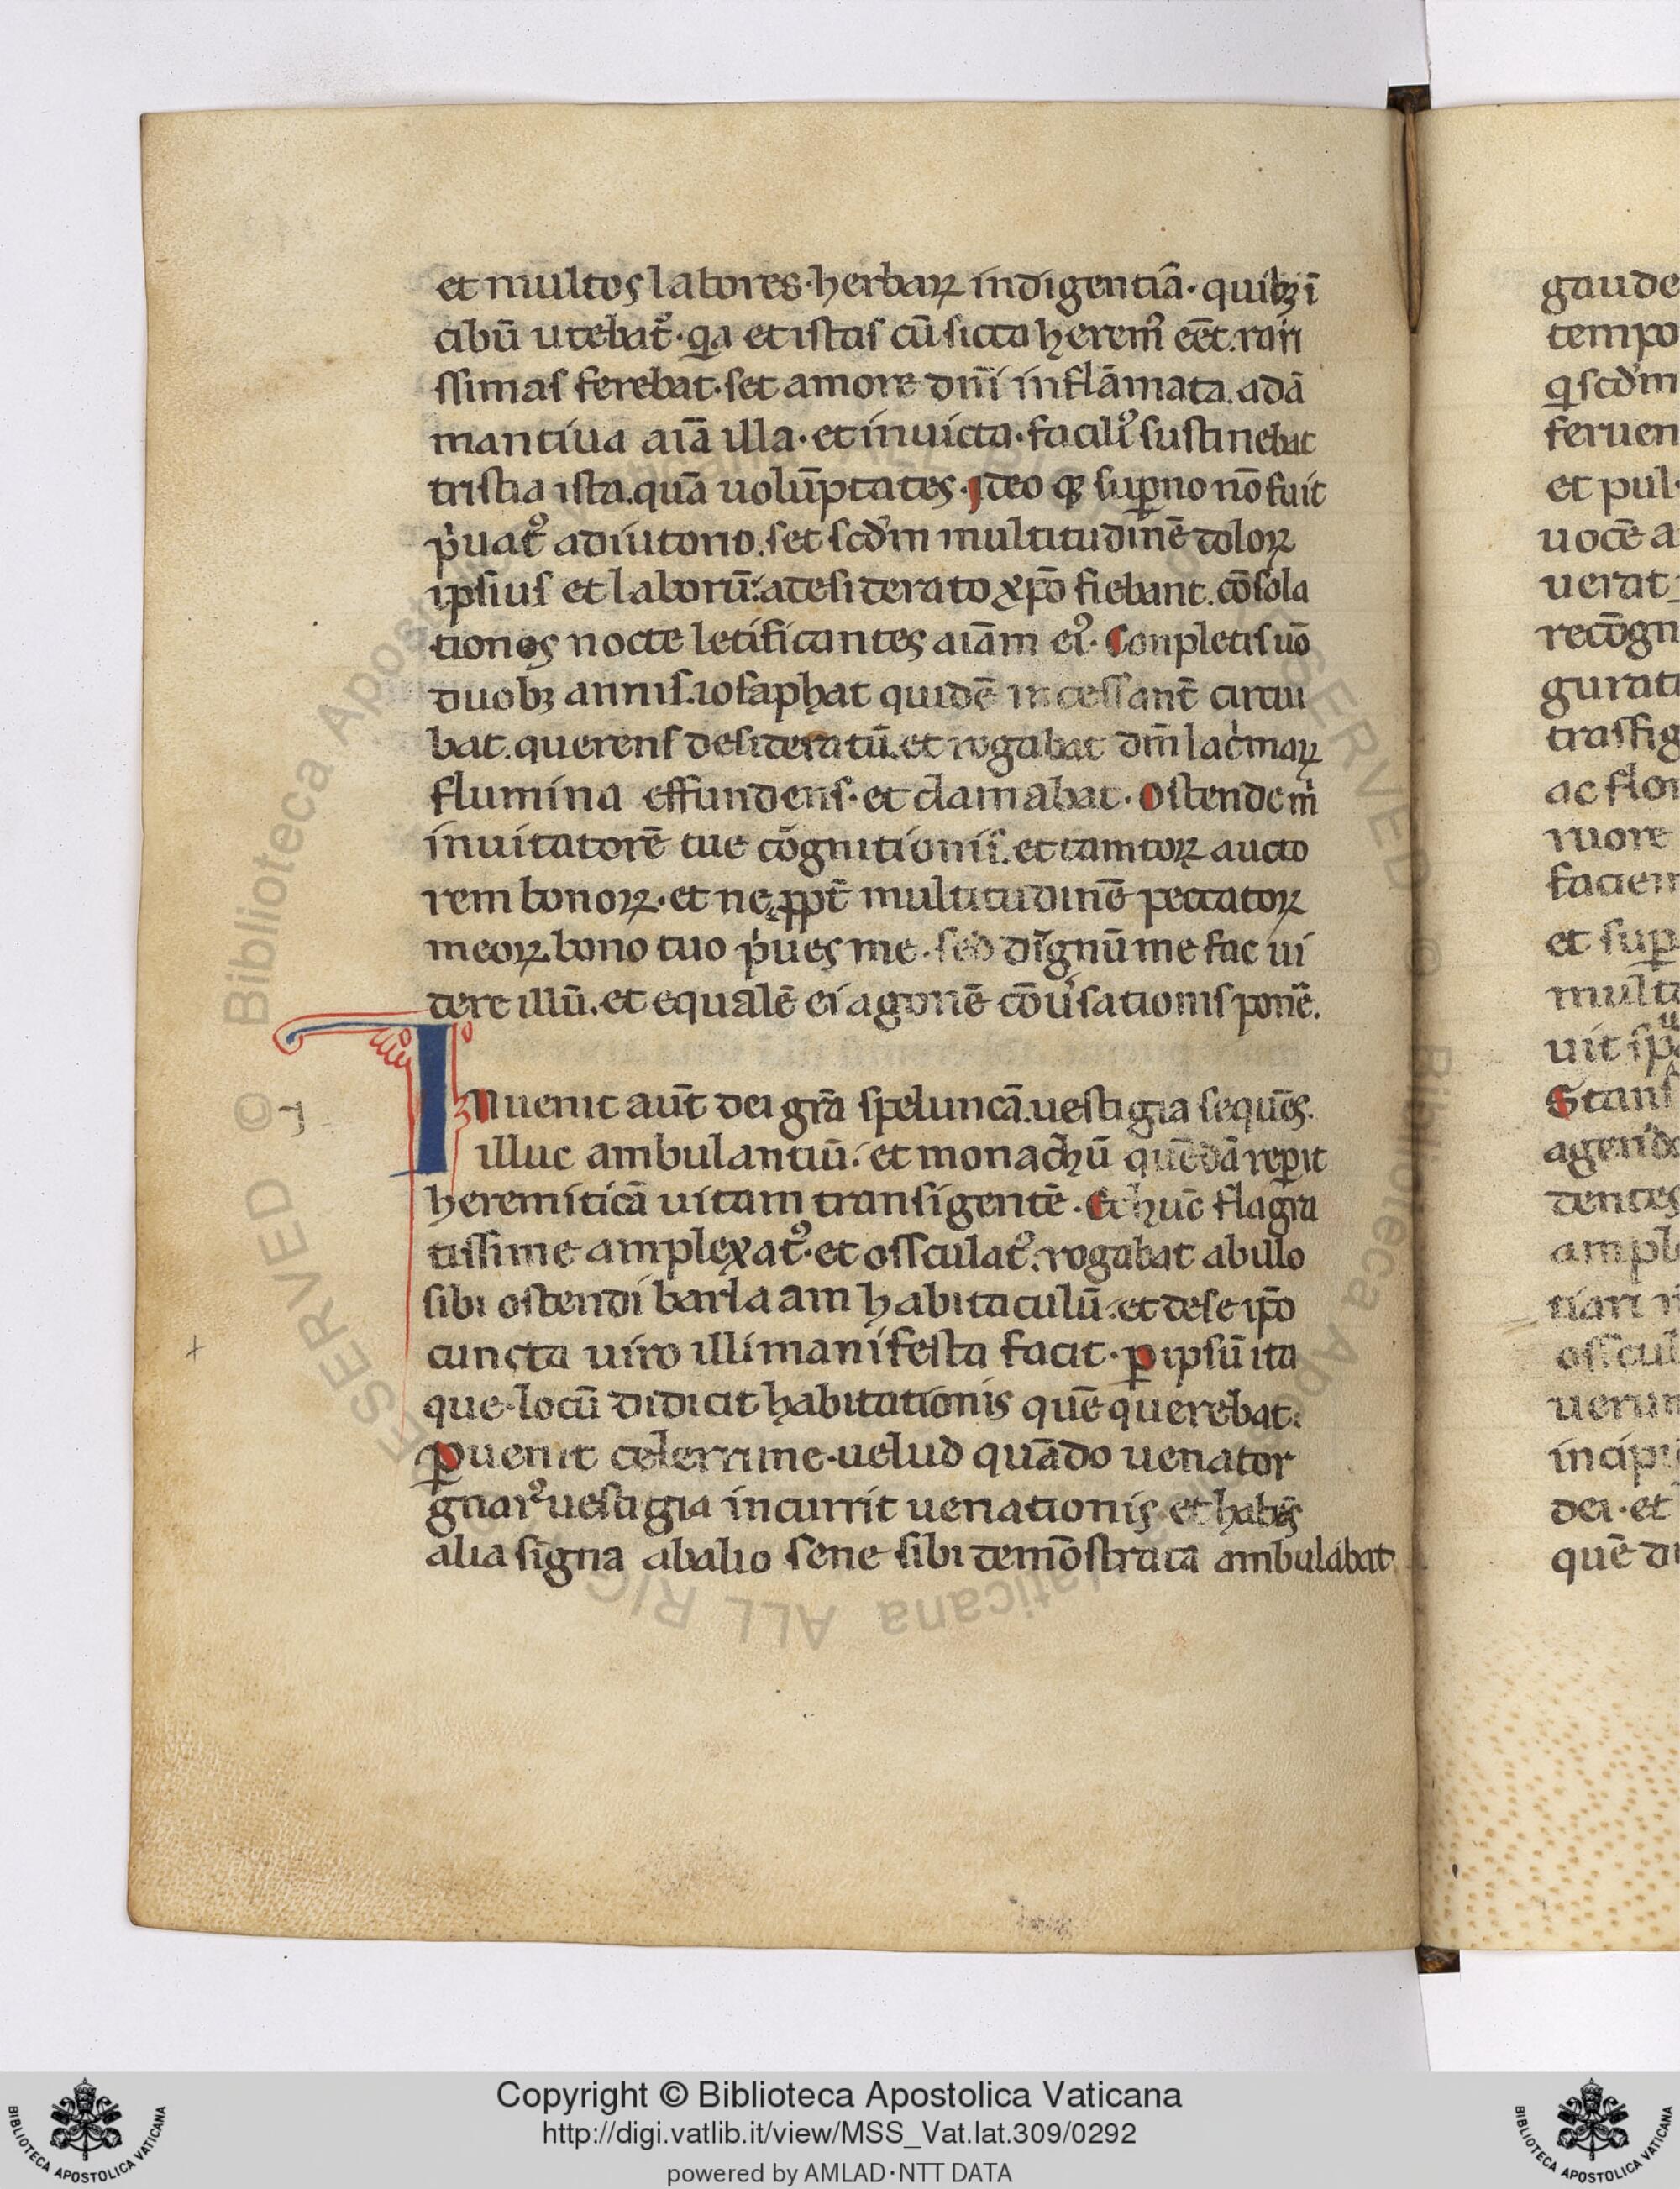 et multos labores·herbaꝝ indigentiā·quibꝫ ī
cibū utebat᷒·qͥa et istas cū sicca herem᷒ eēt.rari
ssimas ferebat·set amore dn̄i inflāmata.adā
mantiua aīa illa·et inuicta·facili᷒ sustinebat
tristia ista.quā uolūptates·Ideo qꝫ suꝑno nō fuit
pͥuat᷒ adiutorio.set scd̄m multitudinē doloꝝ
ipsius et laborū:adesiderato xp̄o fiebant.cōsola
tiones nocte letificantes aīam ei᷒·Conpletis uō
duobꝫ annis.iosaphat quidē incessant̄ circui
bat.querens desideratū.et rogabat dn̄m lacͥmaꝝ
flumina effundens·et clamabat·Ostende mͥ
inuitatorē tue cōgnitionis.et tamtoꝝ aucto
rem bonoꝝ·et ne ꝓpt̄ multitudinē peccatoꝝ
meoꝝ.bono tuo pͥues me·sed dignū me fac ui
dere illū.et equalē ei agonē cōu̓sationis ponē.
INuenit aut̄ dei grā speluncā.uestigia sequēs.
illuc ambulantiū·et monachū quēdā reꝑit
heremiticā uitam transigentē·Et hūc flagra
tissime amplexat᷒·et osculat᷒.rogabat ab illo
sibi ostendi barlaam habitaculū.et de se ip̄o
cuncta uiro illi manifesta facit·ꝑ ipsū ita
que·locū didicit habitationis quē querebat.
ꝑuenit celerrime·uelud quādo uenator
gnar᷒ uestigia incurrit uenationis·et habēs
alia signa ab alio sene sibi demōstrata ambulabat
gaude
tempo
qͥ scd̄m
feruen
et pul
uocē a
uerat
recōgn
gurati
trasfig
ac flor
ruore
faciem
et suꝑ
multa
uit
Stans
agend
dentes
ampl
tiari
oscul
uerum
incipi
dei·et
quē di
© Biblioteca Apostolica Vaticana ALL RIGHTS RESERVED
Copyright © Biblioteca Apostolica Vaticana
http://digi.vatlib.it/view/MSS_Vat.lat.309/0292
powered by AMLAD·NTT DATA
BIBLIOTECA APOSTOLICA VATICANA
BIBLIOTECA APOSTOLICA VATICANA